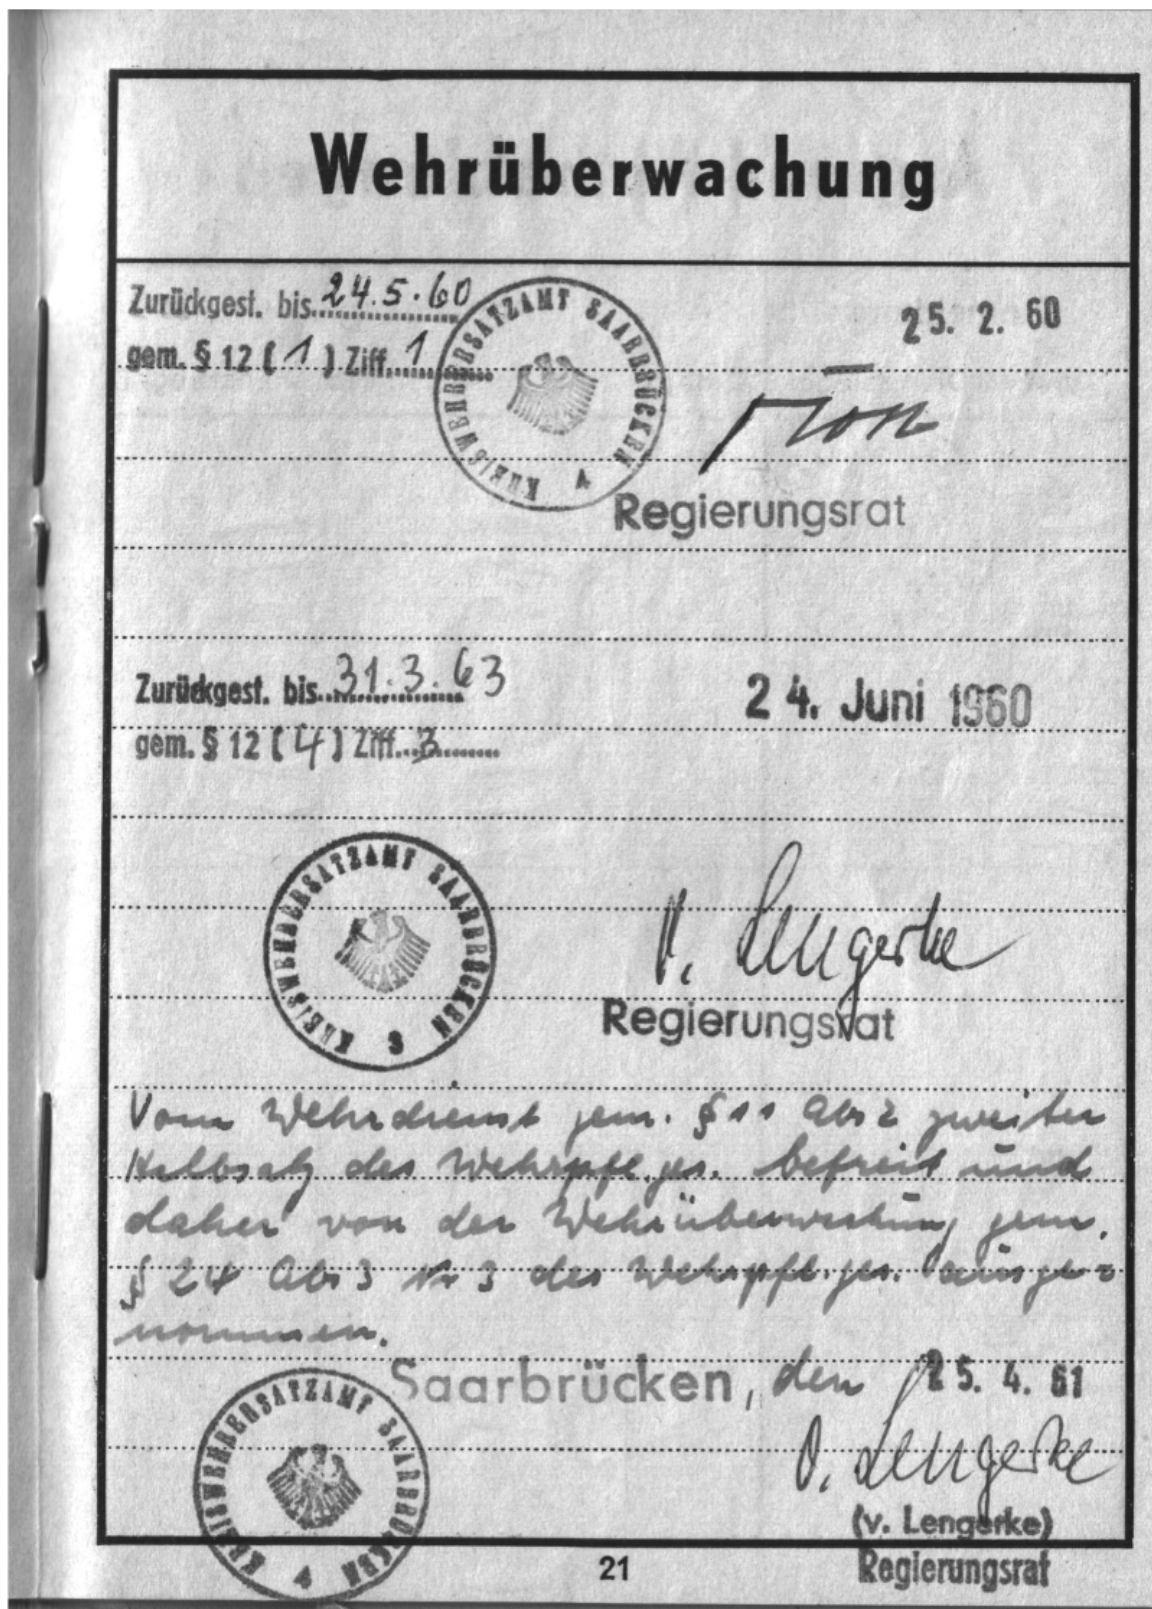 Wehrüberwachung
Zurückgest. bis 24.5.60
25. 2. 60
gem. § 12 (1) Ziff. 1
KREISWEHRERSATZAMT SAARBRÜCKEN 4
Regierungsrat
Zurückgest. bis 31.3.63
24. Juni 1960
gem. § 12 (4) Ziff. 3
KREISWEHRERSATZAMT SAARBRÜCKEN 3
v. Lengerke
Regierungsrat
Vom Wehrdienst gem. § 11 Abs 2 zweiter
Halbsatz des Wehrpfl.ges. befreit und
daher von der Wehrüberwachung gem.
§ 24 Abs 3 Nr 3 des Wehrpfl.ges. ausge=
nommen.
Saarbrücken, den 25. 4. 61
KREISWEHRERSATZAMT SAARBRÜCKEN 4
v. Lengerke
(v. Lengerke)
Regierungsrat
21